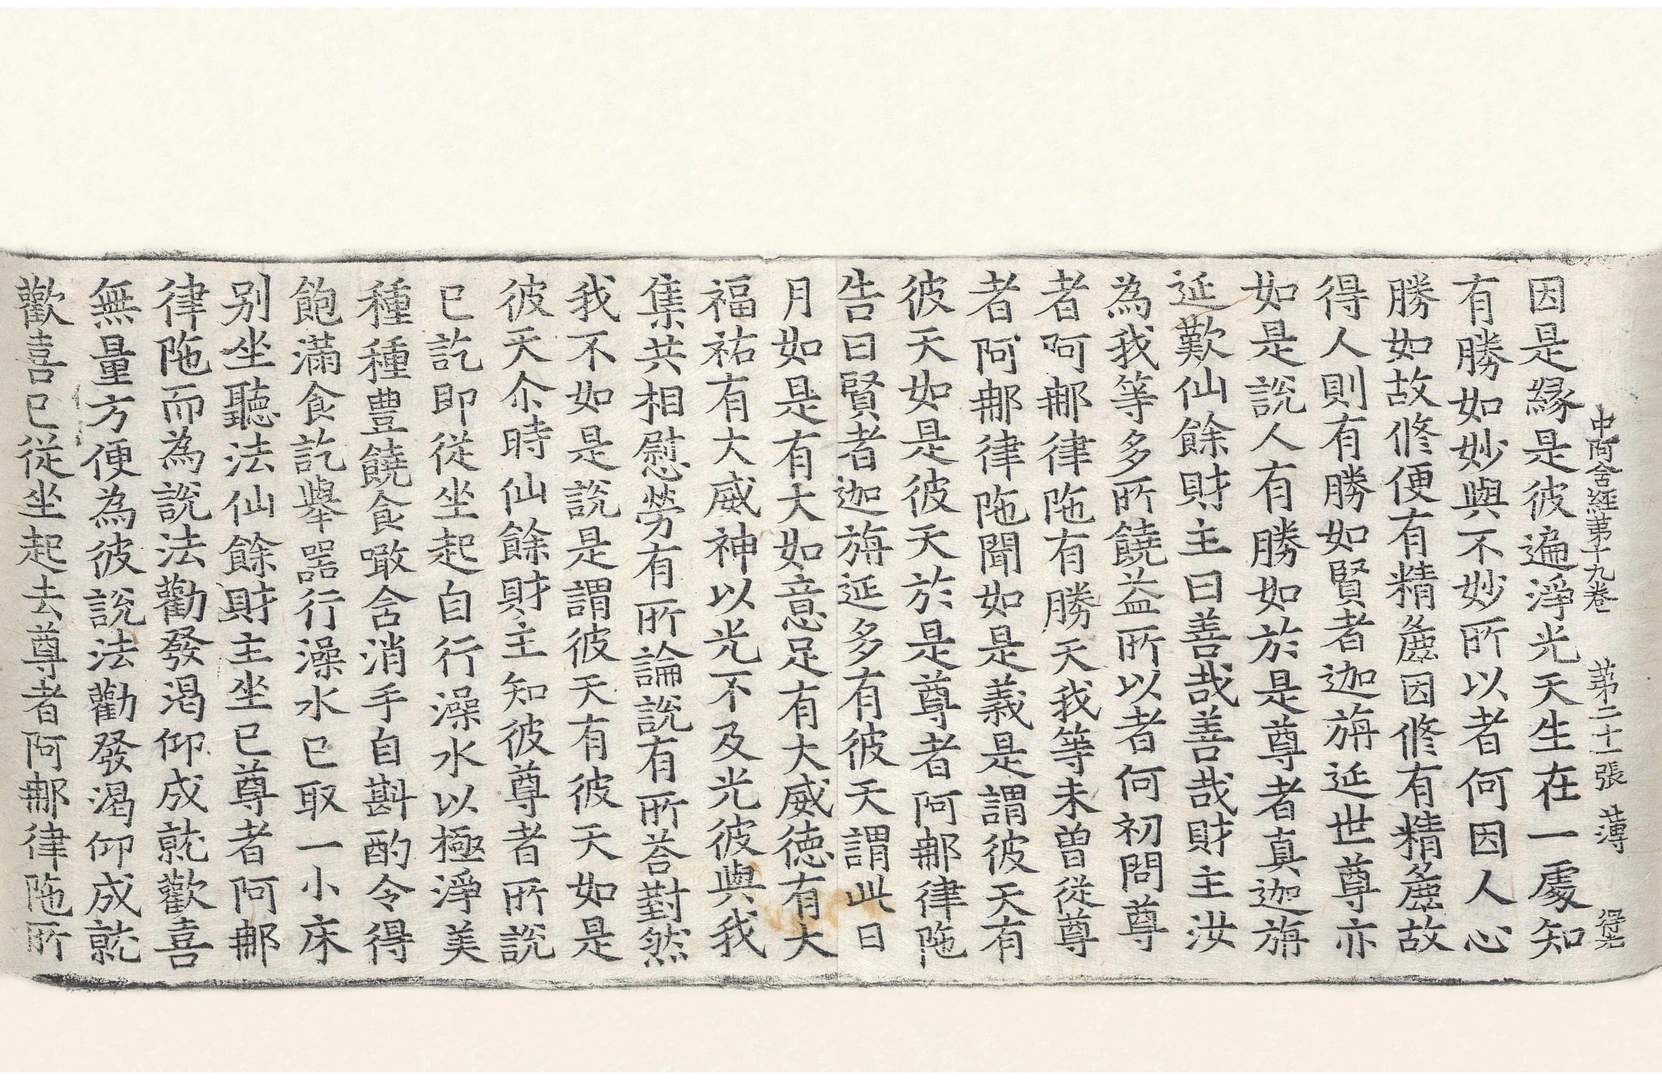 中阿含經苐十九卷 苐二十一張 薄
因是緣是彼遍淨光天生在一處知
有勝如妙與不妙所以者何因人心
勝如故修便有精麁因修有精麁故
得人則有勝如賢者迦旃延世尊亦
如是說人有勝如於是尊者真迦旃
延歎仙餘財主曰善哉善哉財主汝
為我等多所饒益所以者何初問尊
者阿那律陁有勝天我等未曾從尊
者阿那律陁聞如是義是謂彼天有
彼天如是彼天於是尊者阿那律陁
告曰賢者迦旃延多有彼天謂此日
月如是有大如意足有大威徳有大
福祐有大威神以光不及光彼與我
集共相慰勞有所論說有所荅對然
我不如是說是謂彼天有彼天如是
彼天尒時仙餘財主知彼尊者所說
已訖即從坐起自行澡水以極淨美
種種豐饒食噉含消手自斟酌令得
飽滿食訖舉器行澡水已取一小床
别坐聽法仙餘財主坐已尊者阿那
律陁而為說法勸發渴仰成就歡喜
無量方便為彼說法勸發渴仰成就
歡喜已從坐起去尊者阿那律陁所